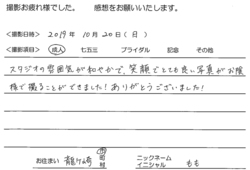 撮影お疲れ様でした。 感想をお願いいたします。
<撮影日時> 2019年 10月 20日 (日)
<撮影項目> 成人 七五三 ブライダル 記念 その他
スタジオの雰囲気が和やかで、笑顔でとても良い写真がお陰
様で撮ることができました！ありがとうございました！
お住まい 龍ヶ崎 市 町 村 ニックネーム イニシャル もも